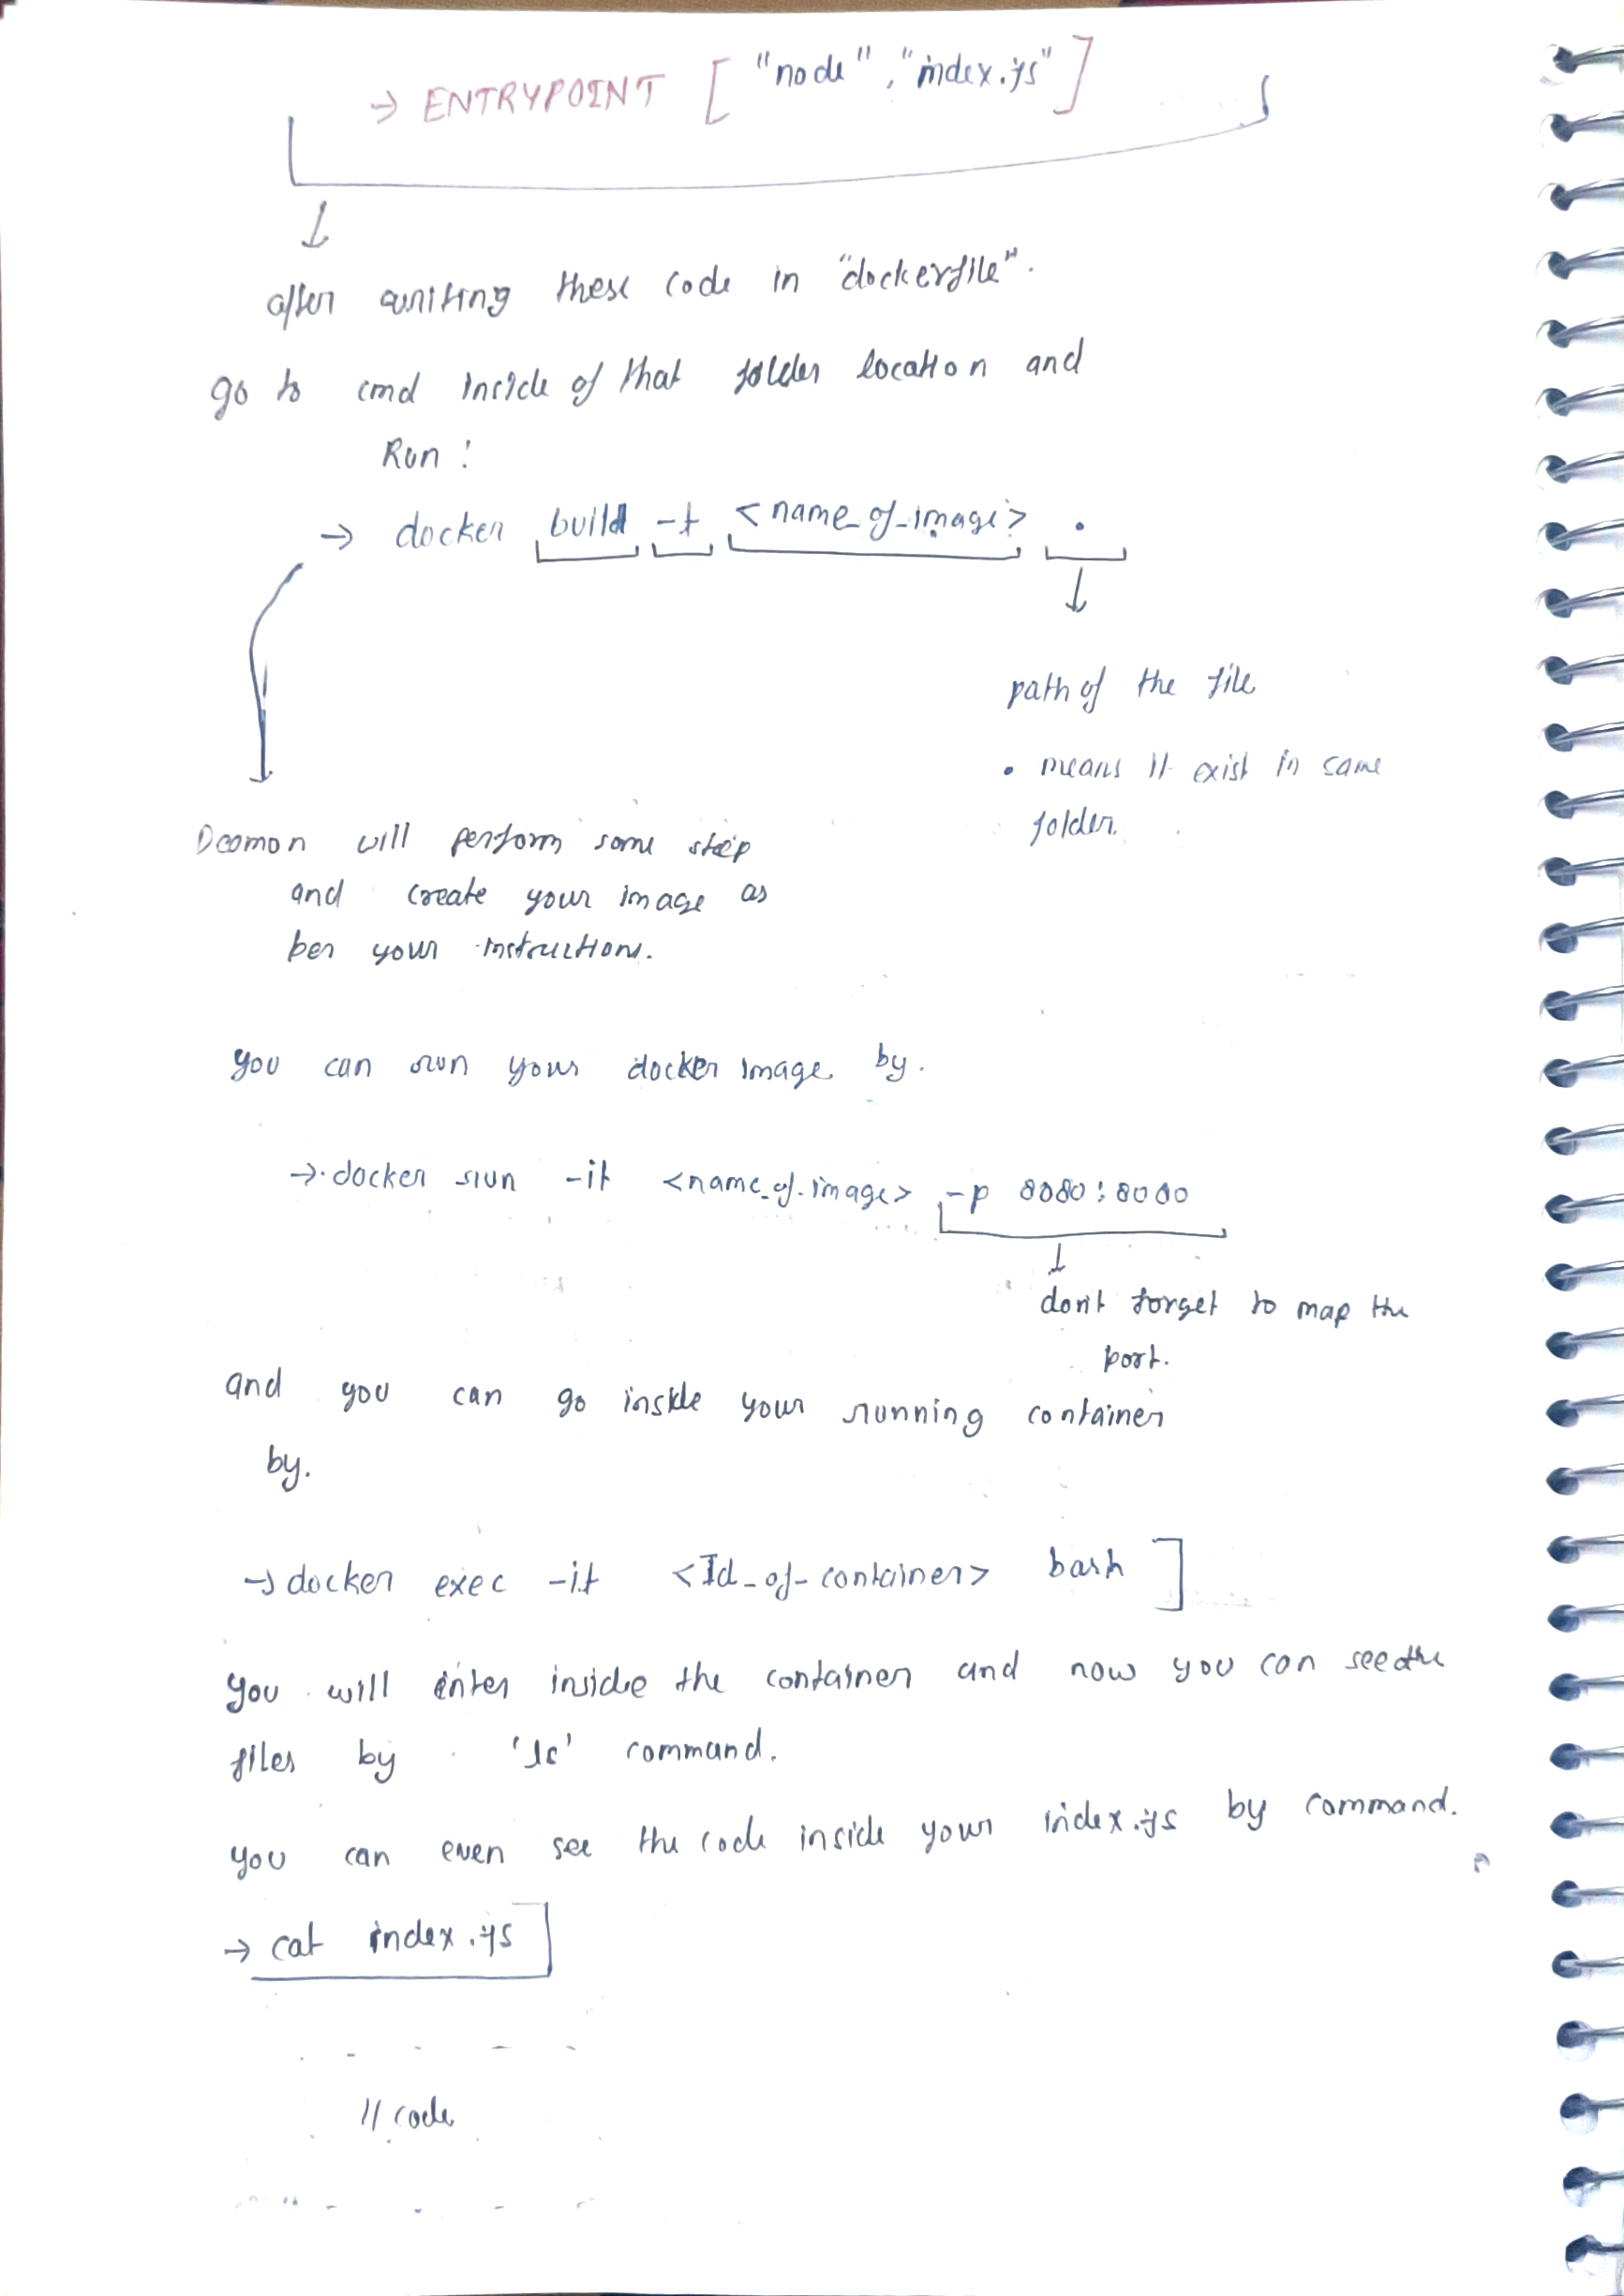 → ENTRYPOINT ["node", "index.js"]
after writing these code in "dockerfile".
go to cmd inside of that folder location and
Run :
→ docker build -t <name_of_image> .
path of the file
• means it exist in same
folder.
Deamon will perform some step
and create your image as
per your instructions.
you can run your docker image by.
→ docker run -it <name_of_image> -p 8080:8000
don't forget to map the
port.
and you can go inside your running container
by.
→ docker exec -it <Id_of_container> bash ]
you will enter inside the container and now you can see the
files by 'ls' command.
you can even see the code inside your index.js by command.
→ cat index.js
// code